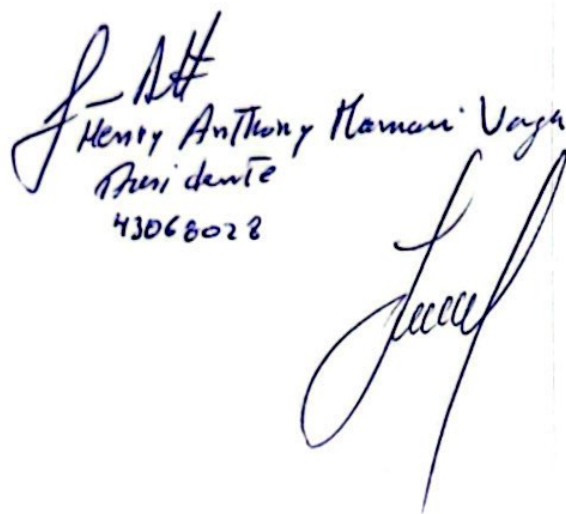 Henry Anthony Mamani Vega
Presidente
43068028